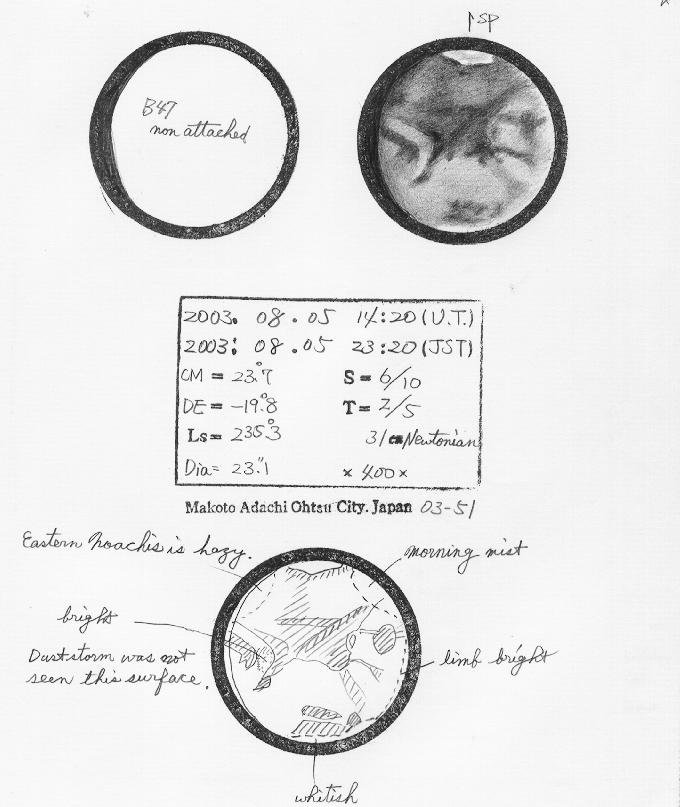 ↑SP
B47
non attached
2003. 08. 05 14:20 (U.T.)
2003: 08. 05 23:20 (JST)
CM = 23.°7 S = 6/10
DE = -19.°8 T = 2/5
Ls = 235.°3 31cm Newtonian
Dia = 23."1 × 400×
Makoto Adachi Ohtsu City. Japan 03-51
Eastern Noachis is hazy.
morning mist
bright
Dust storm was not
seen this surface.
limb bright
whitish